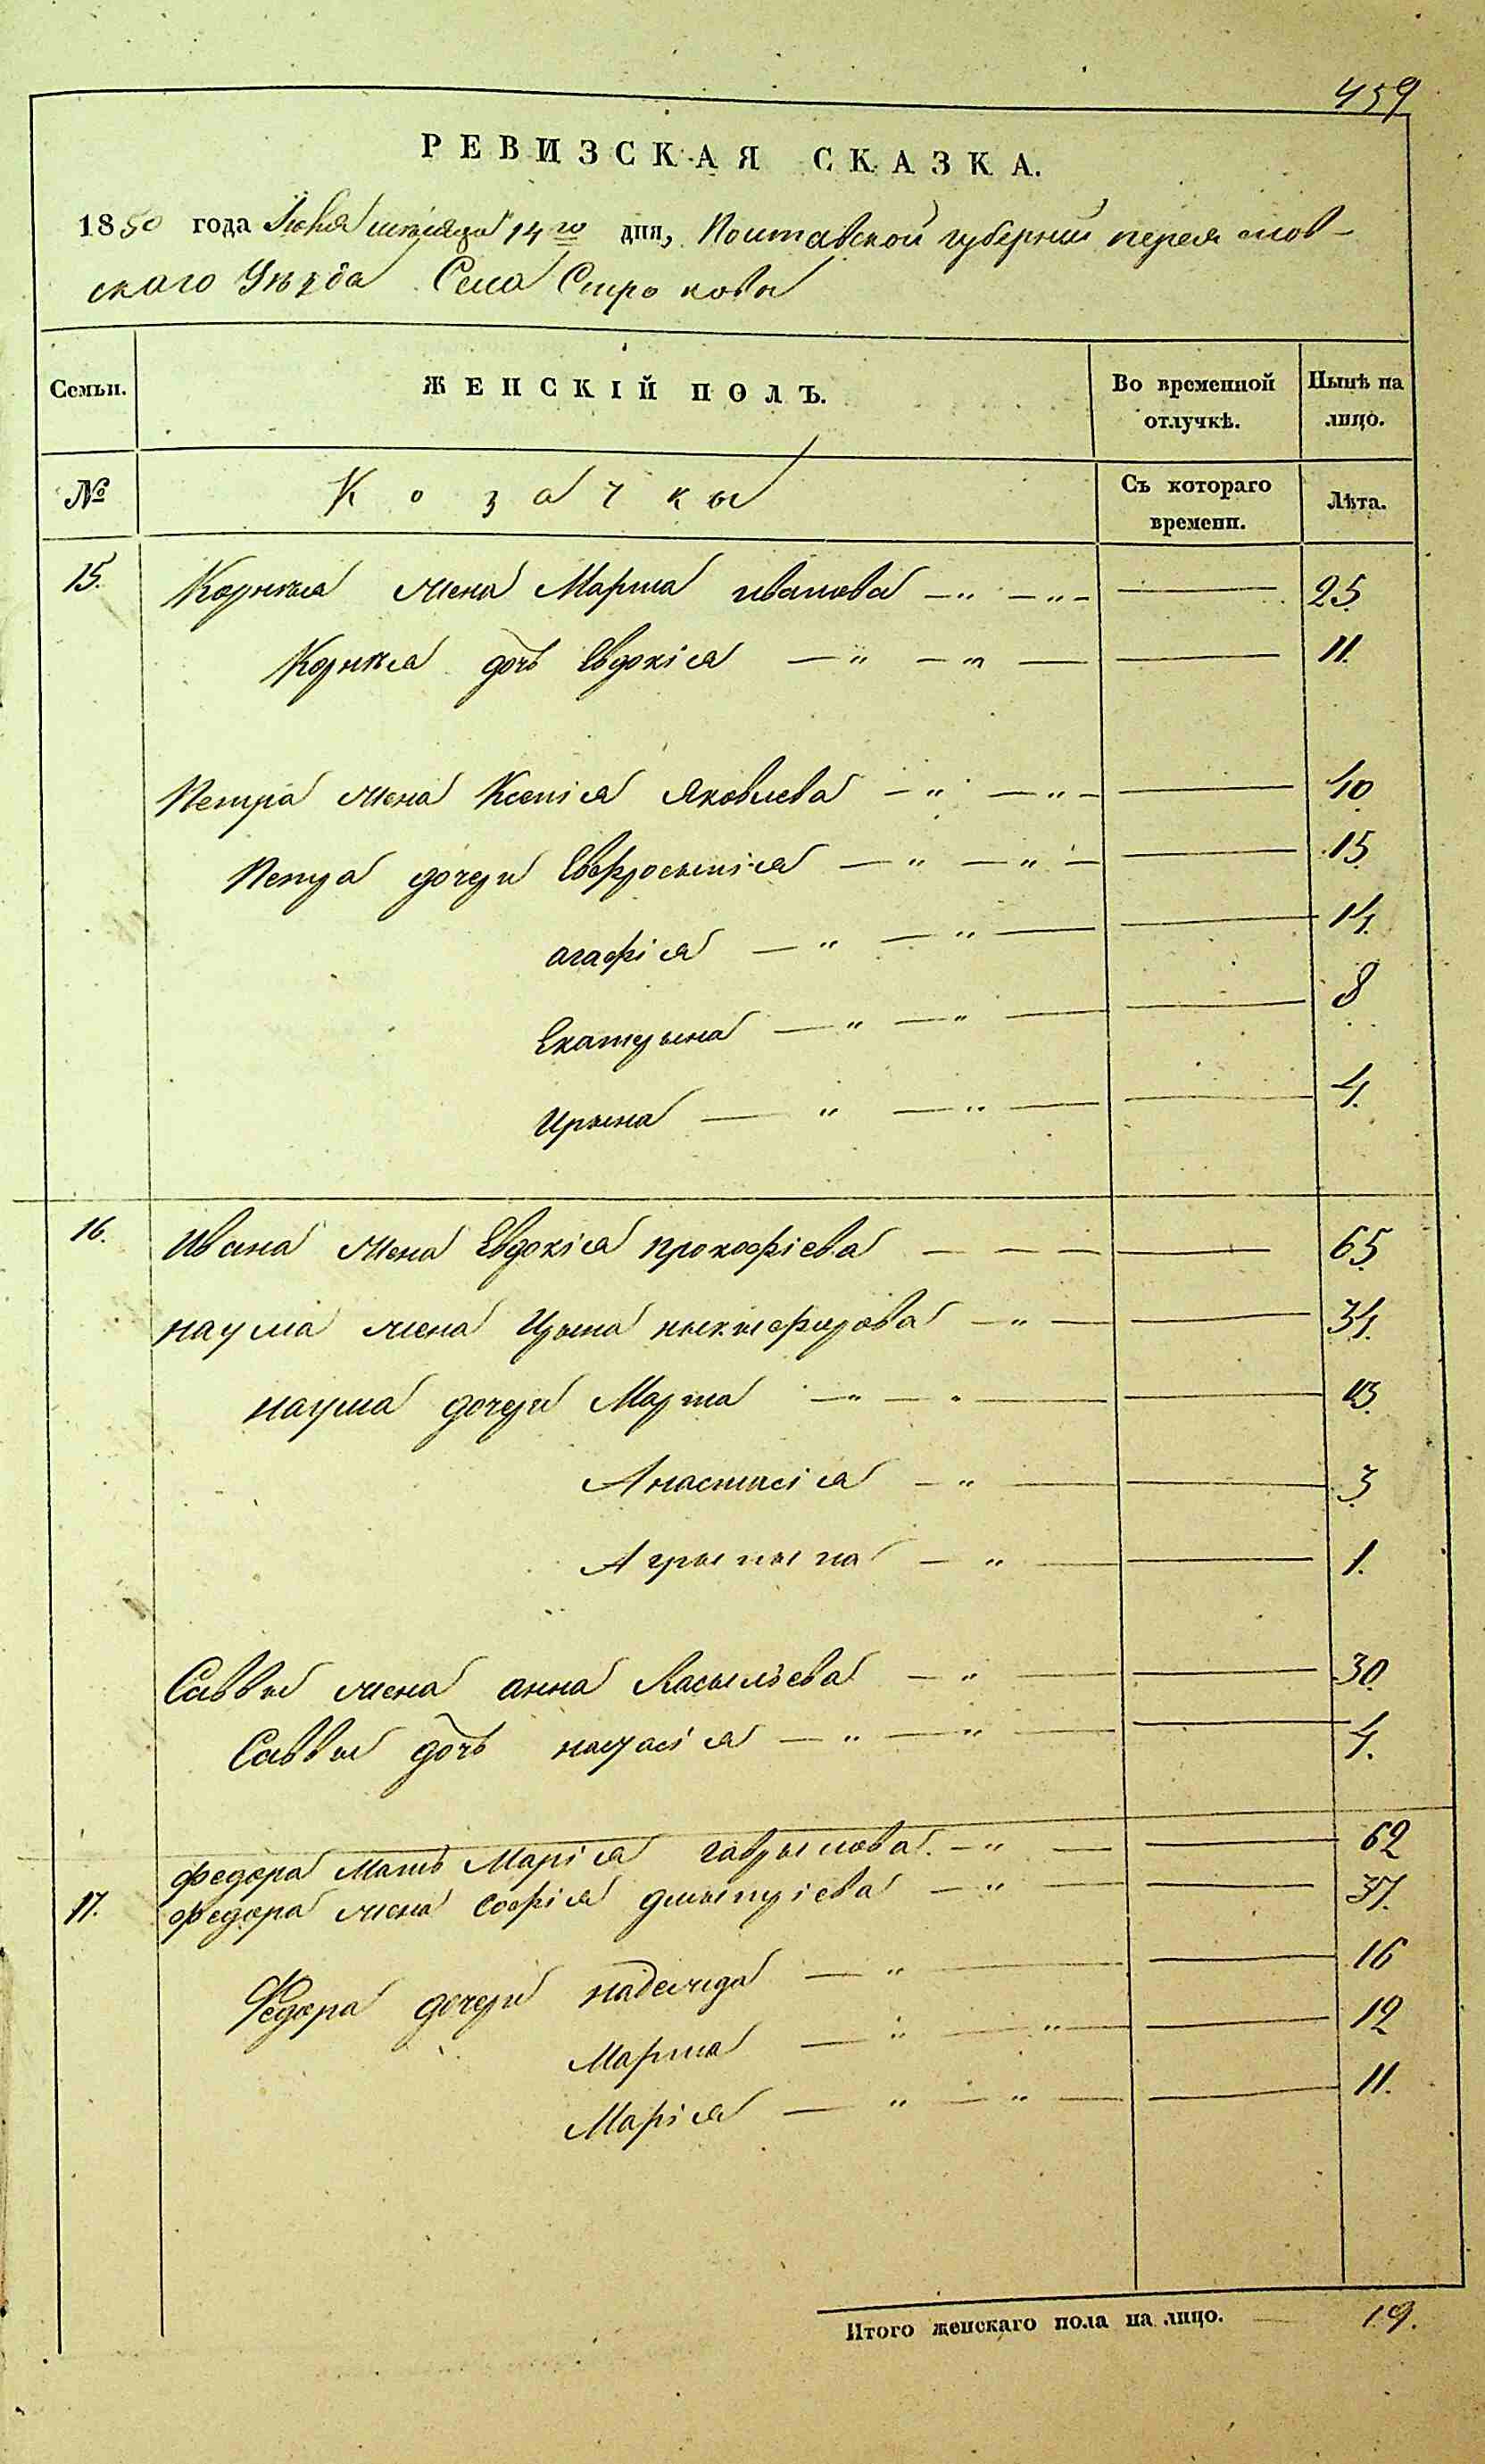 459
РЕВИЗСКАЯ СКАЗКА.
1850 года Июня мѣсяца 14го дня, Полтавской губерніи переяслов-
скаго Уѣзда Села Строковы
Семьи. ЖЕНСКІЙ ПОЛЪ. Во временной отлучкѣ. Нынѣ на лицо.
№ Козачкы Съ котораго времени. Лѣта.
15. Корныла жена Марта иванова —„ —„— — 25.
Корныла дочь Евдокія —„ —„ — — 11.
Петра жена Ксенія Яковлева —„ —„— — 40
Петра дочери Евфросынія —„ —„— — 15
агафія —„ —„ — — 14.
Екатерына —„ —„ — — 8
Ирына —„ —„ — — 4.
16. Ивана жена Евдокія прокофіева — — — — 65
наума жена Ирына ныкыфорова —„— — 34.
наума дочери Марта —„—„— — 13.
Анастасія —„ — — 3
Агрыпына —„ — — 1.
Саввы жена анна Васыльева —„ — — 30
Саввы дочь —„ —„ — — 4.
федора мать Марія гаврылова. —„ — — 62
17. федора жена софія дмытріева —„ — — 37.
Федора дочери надежда —„ — — 16
Марта —„ —„— — 12
Марія —„ —„ — — 11.
Итого женскаго пола на лицо. — 19.